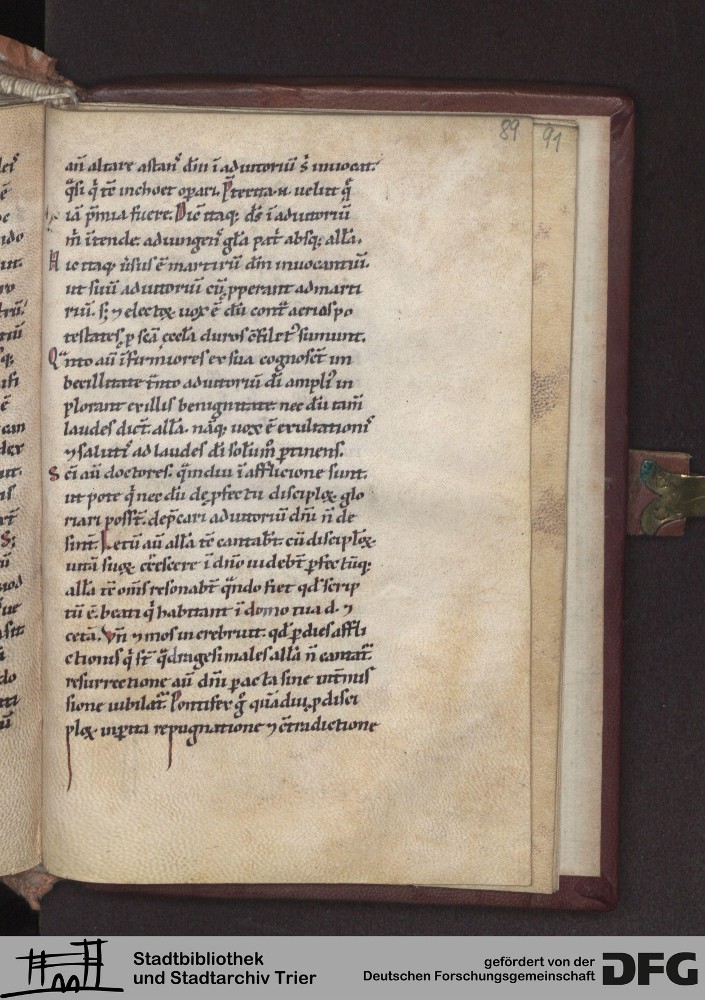 89 91
aū altare astanˢ dm̄ ī adiutoriū ṡ inuocat.
q̄si q̇ tē inchoet oꝑari.
iā p̄mia fuere. Dic̄ itaq; ds̄ ī adiutoriū
m̄ ītende. adiungenˢ gl̄a pat͛ absq; all̄a.
Hic itaq; u͛sus ē martirū dn̄m inuocantiū.
ut suū adiutoriū cū ꝓperant ad marti
riū. s; ⁊ electoꝝ uox ē dū cont͛ aerias po
testates, ꝑ scā eccl̄a duros
Quanto aū īfirmiores ex sua cognosct̄ im
becillitate tāto adiutoriū di ampliˢ in
plorant ex illiˢ benignitate nec dū tam̄
laudes dict̄. all̄a. nāq; uox ē exultationiˢ
⁊ salutiˢ ad laudes di solūm ꝑtinens.
Sc̄i aū doctores. q̄mdiu ī afflictione sunt.
ut pote q̇ nec dū de ꝓfectu discipl̄oꝝ glo
riari posst̄. dep̄cari adiutoriū dn̄i n̄ de
sint̄. Letū aū all̄a tē cantabt̄ cū discipl̄oꝝ
uitā suoꝝ c͛rescere ī dn̄o uidebt̄ ꝓfectūq;
all̄a tē om̄s resonabt̄ q̄ndo fiet qd̄ scrip
tū ē. beati q̇ habitant ī domo tua d. ⁊
cetā. Vn̄ ⁊ mos increbruit. qd̄ ꝑ dies affli
ctionis q̇ st̄ q̄dragesimales all̄a n̄ cantat͛.
resurrectione aū dn̄i ꝑacta sine int͛mis
sione iubilat͛. Pontifex g̊ quādiu, ꝓ disci
ploꝝ inꝑita repugnatione ⁊ c̄tradictione
Stadtbibliothek
und Stadtarchiv Trier
gefördert von der
Deutschen Forschungsgemeinschaft
DFG